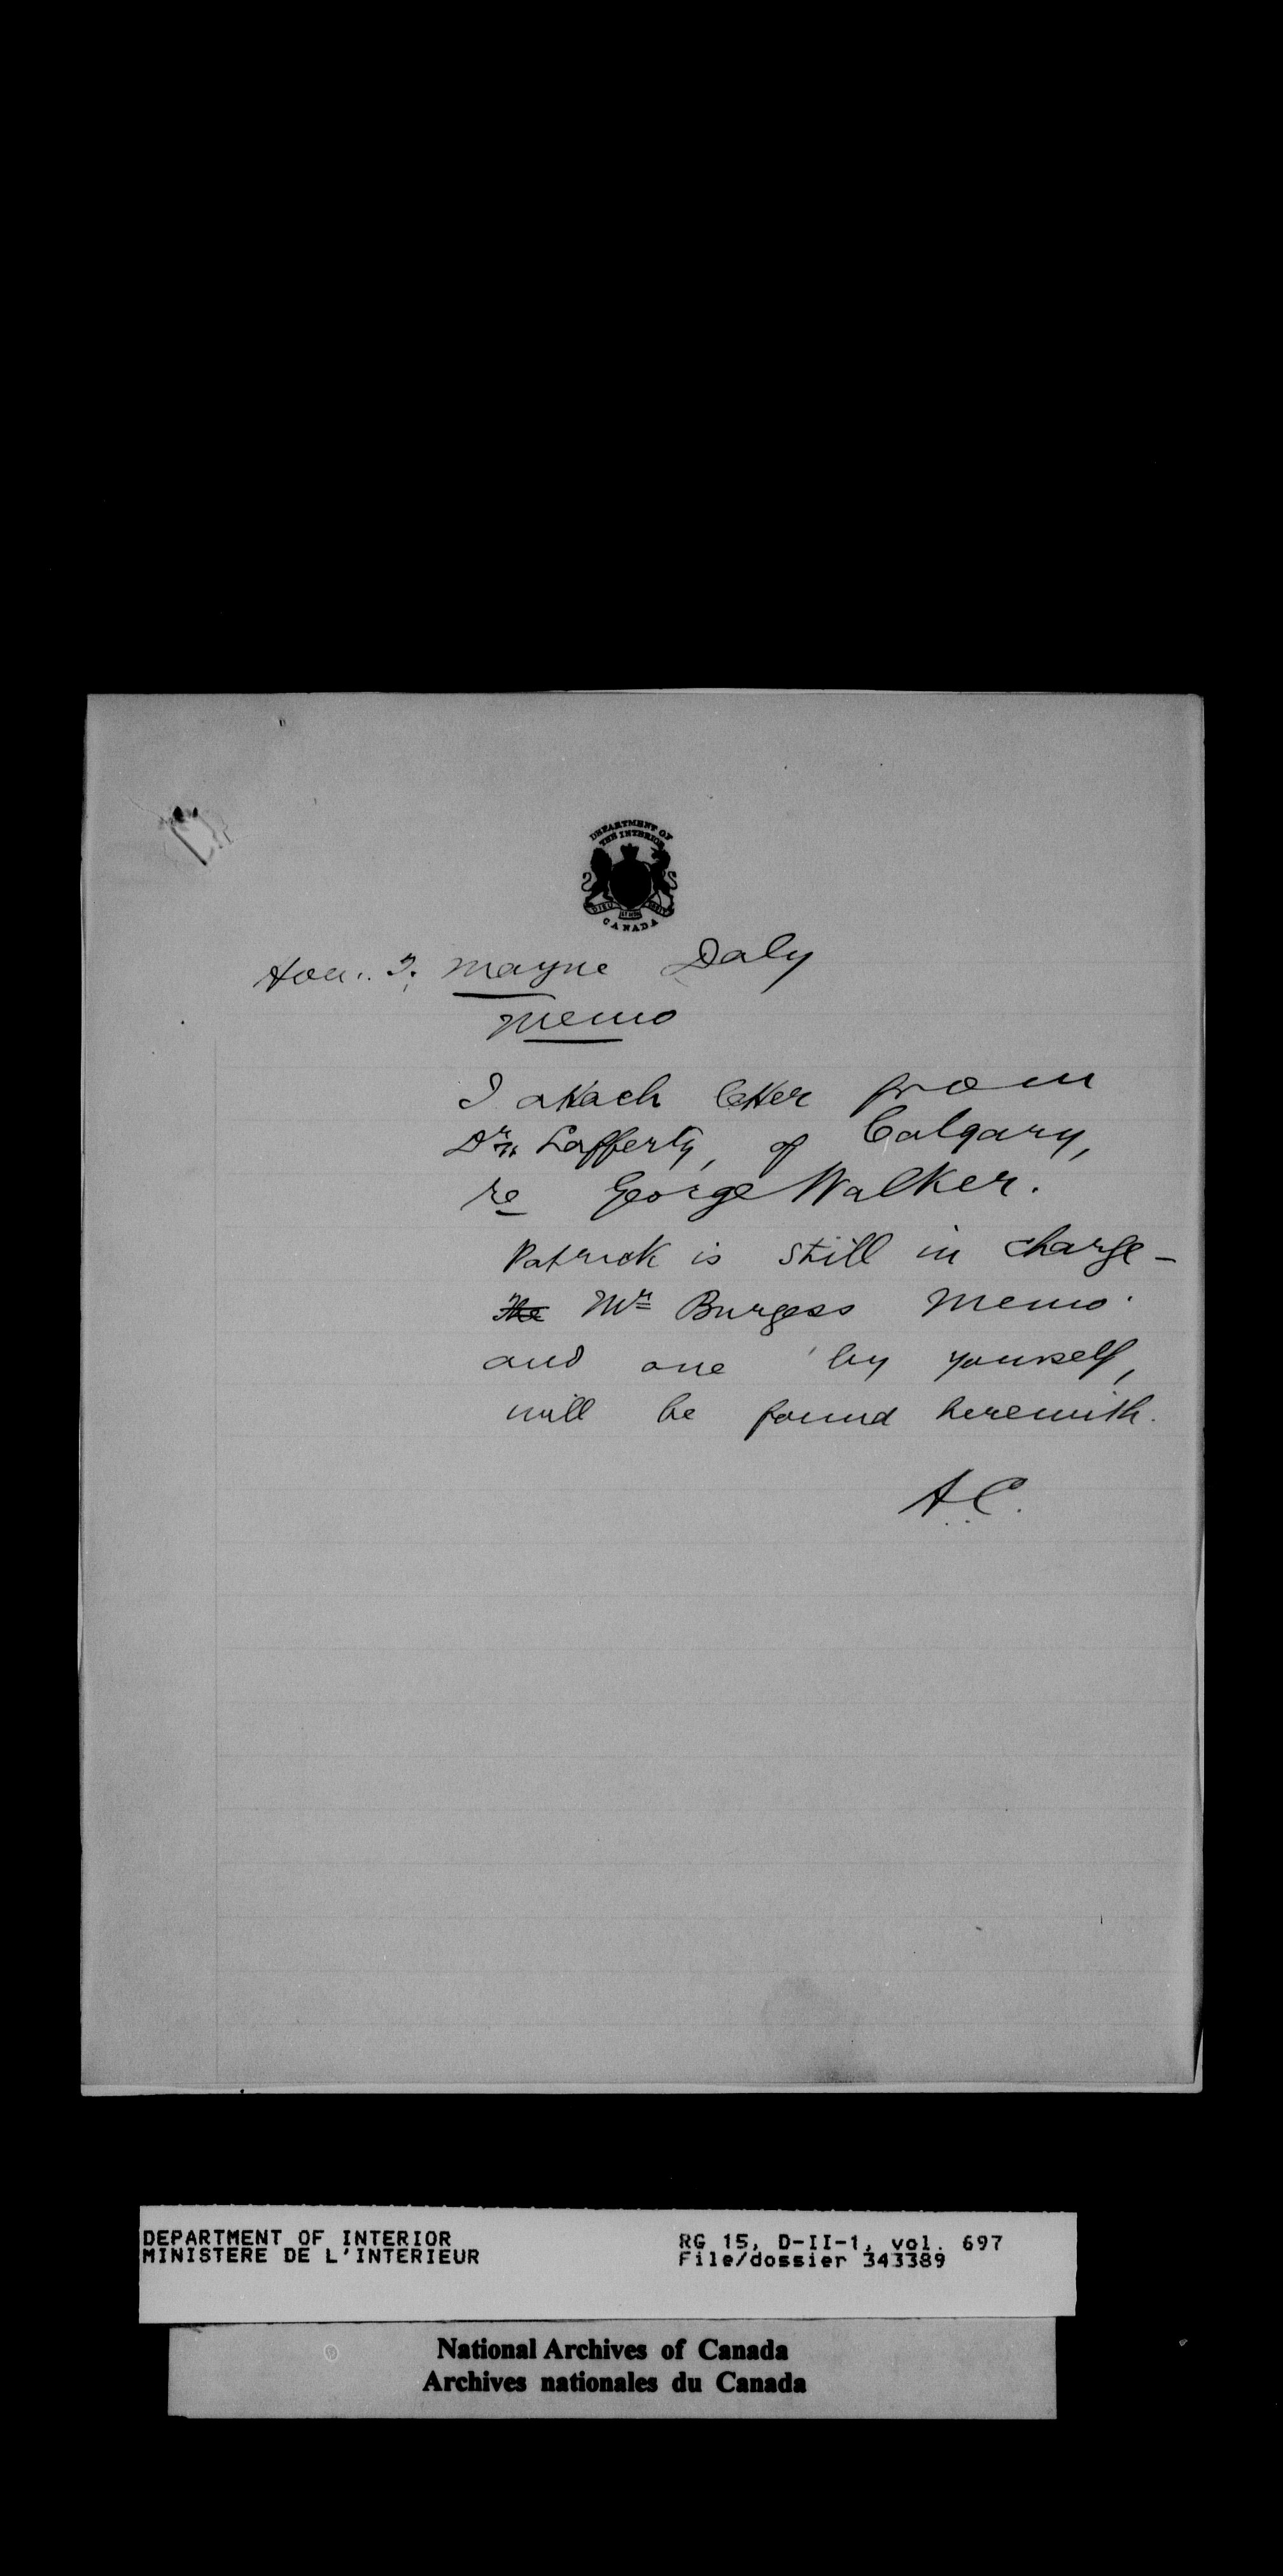 DEPARTMENT OF
THE INTERIOR
CANADA
Hon. T. Mayne Daly
Memo
I attach letter from
Dr. Lafferty, of Calgary,
re George Walker.
Patrick is still in charge –
The Mr Burgess Memo.
and one by yourself,
will be found herewith.
A.C.
DEPARTMENT OF INTERIOR
MINISTERE DE L'INTERIEUR
RG 15, D-II-1, vol. 697
File/dossier 343389
National Archives of Canada
Archives nationales du Canada